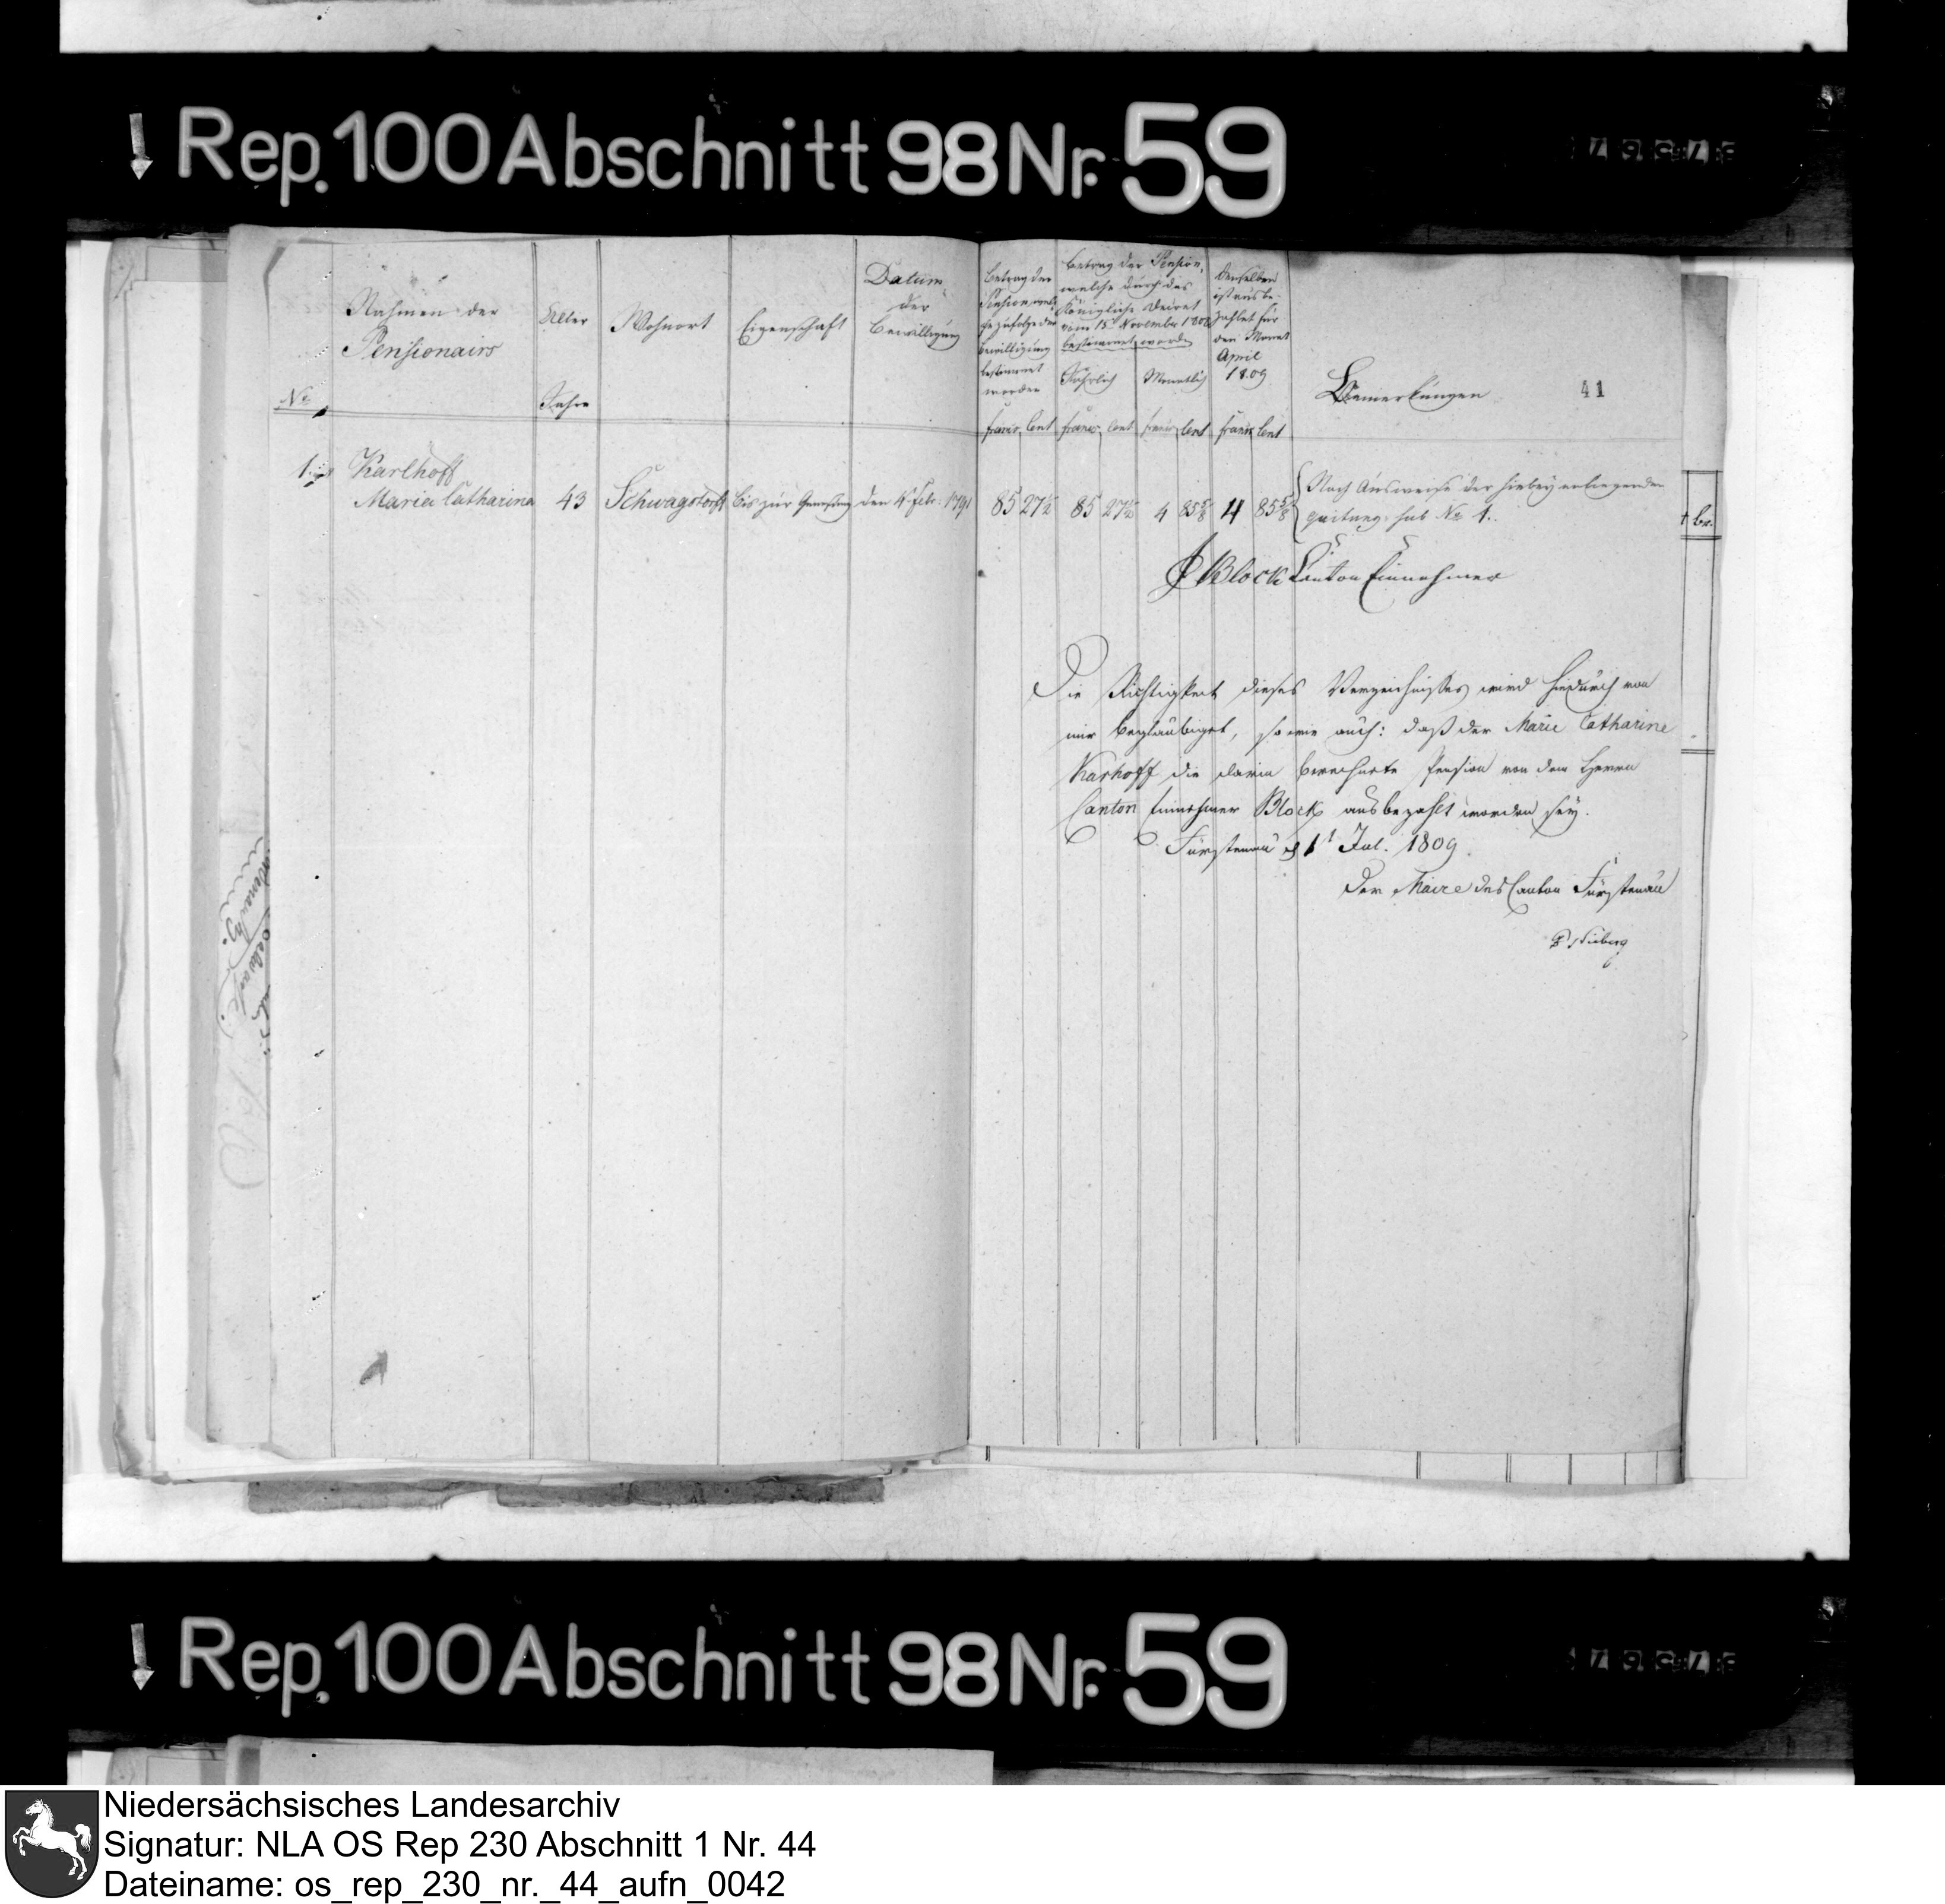 Rep. 100 Abschnitt 98 Nr. 59
Nahmen der
Pensionairs
Alter
Wohnort
Eigenschaft
Datum
der
Bewilligung
Betrag der
Pension, wel-
che zufolge der
Bewilligung
bestimmt
worden
Betrag der Pension,
welche durch das
Königliche Decret
vom 15t November 1808
bestimmet worden
Jährlich
Monatlich
Denselben
ist ausbe-
zahlet für
den Monat
April
1809
Bemerkungen
41
No
Jahre
francs Cent francs Cent francs Cent francs Cent
1. Karlhoff
Maria Catharina 43 Schwagstorff bis zur Genesung den 4t Febr. 1791 85 27½ 85 27½ 4 85⅝ 4 85⅝
Nach Ausweise der hiebey anliegenden
Quitung sub No 1.
Block Canton Einnehmer
Die Richtigkeit dieses Verzeichnisses wird hiedurch von
mir beglaubiget, so wie auch: daß der Marie Catharine
Karhoff die darin berechnete Pension von dem Herrn
Canton Einnehmer Block ausbezahlt worden sey.
Fürstenau d 1t Jul. 1809
Der Maire des Canton Fürstenau
Rep. 100 Abschnitt 98 Nr. 59
Niedersächsisches Landesarchiv
Signatur: NLA OS Rep 230 Abschnitt 1 Nr. 44
Dateiname: os_rep_230_nr._44_aufn_0042